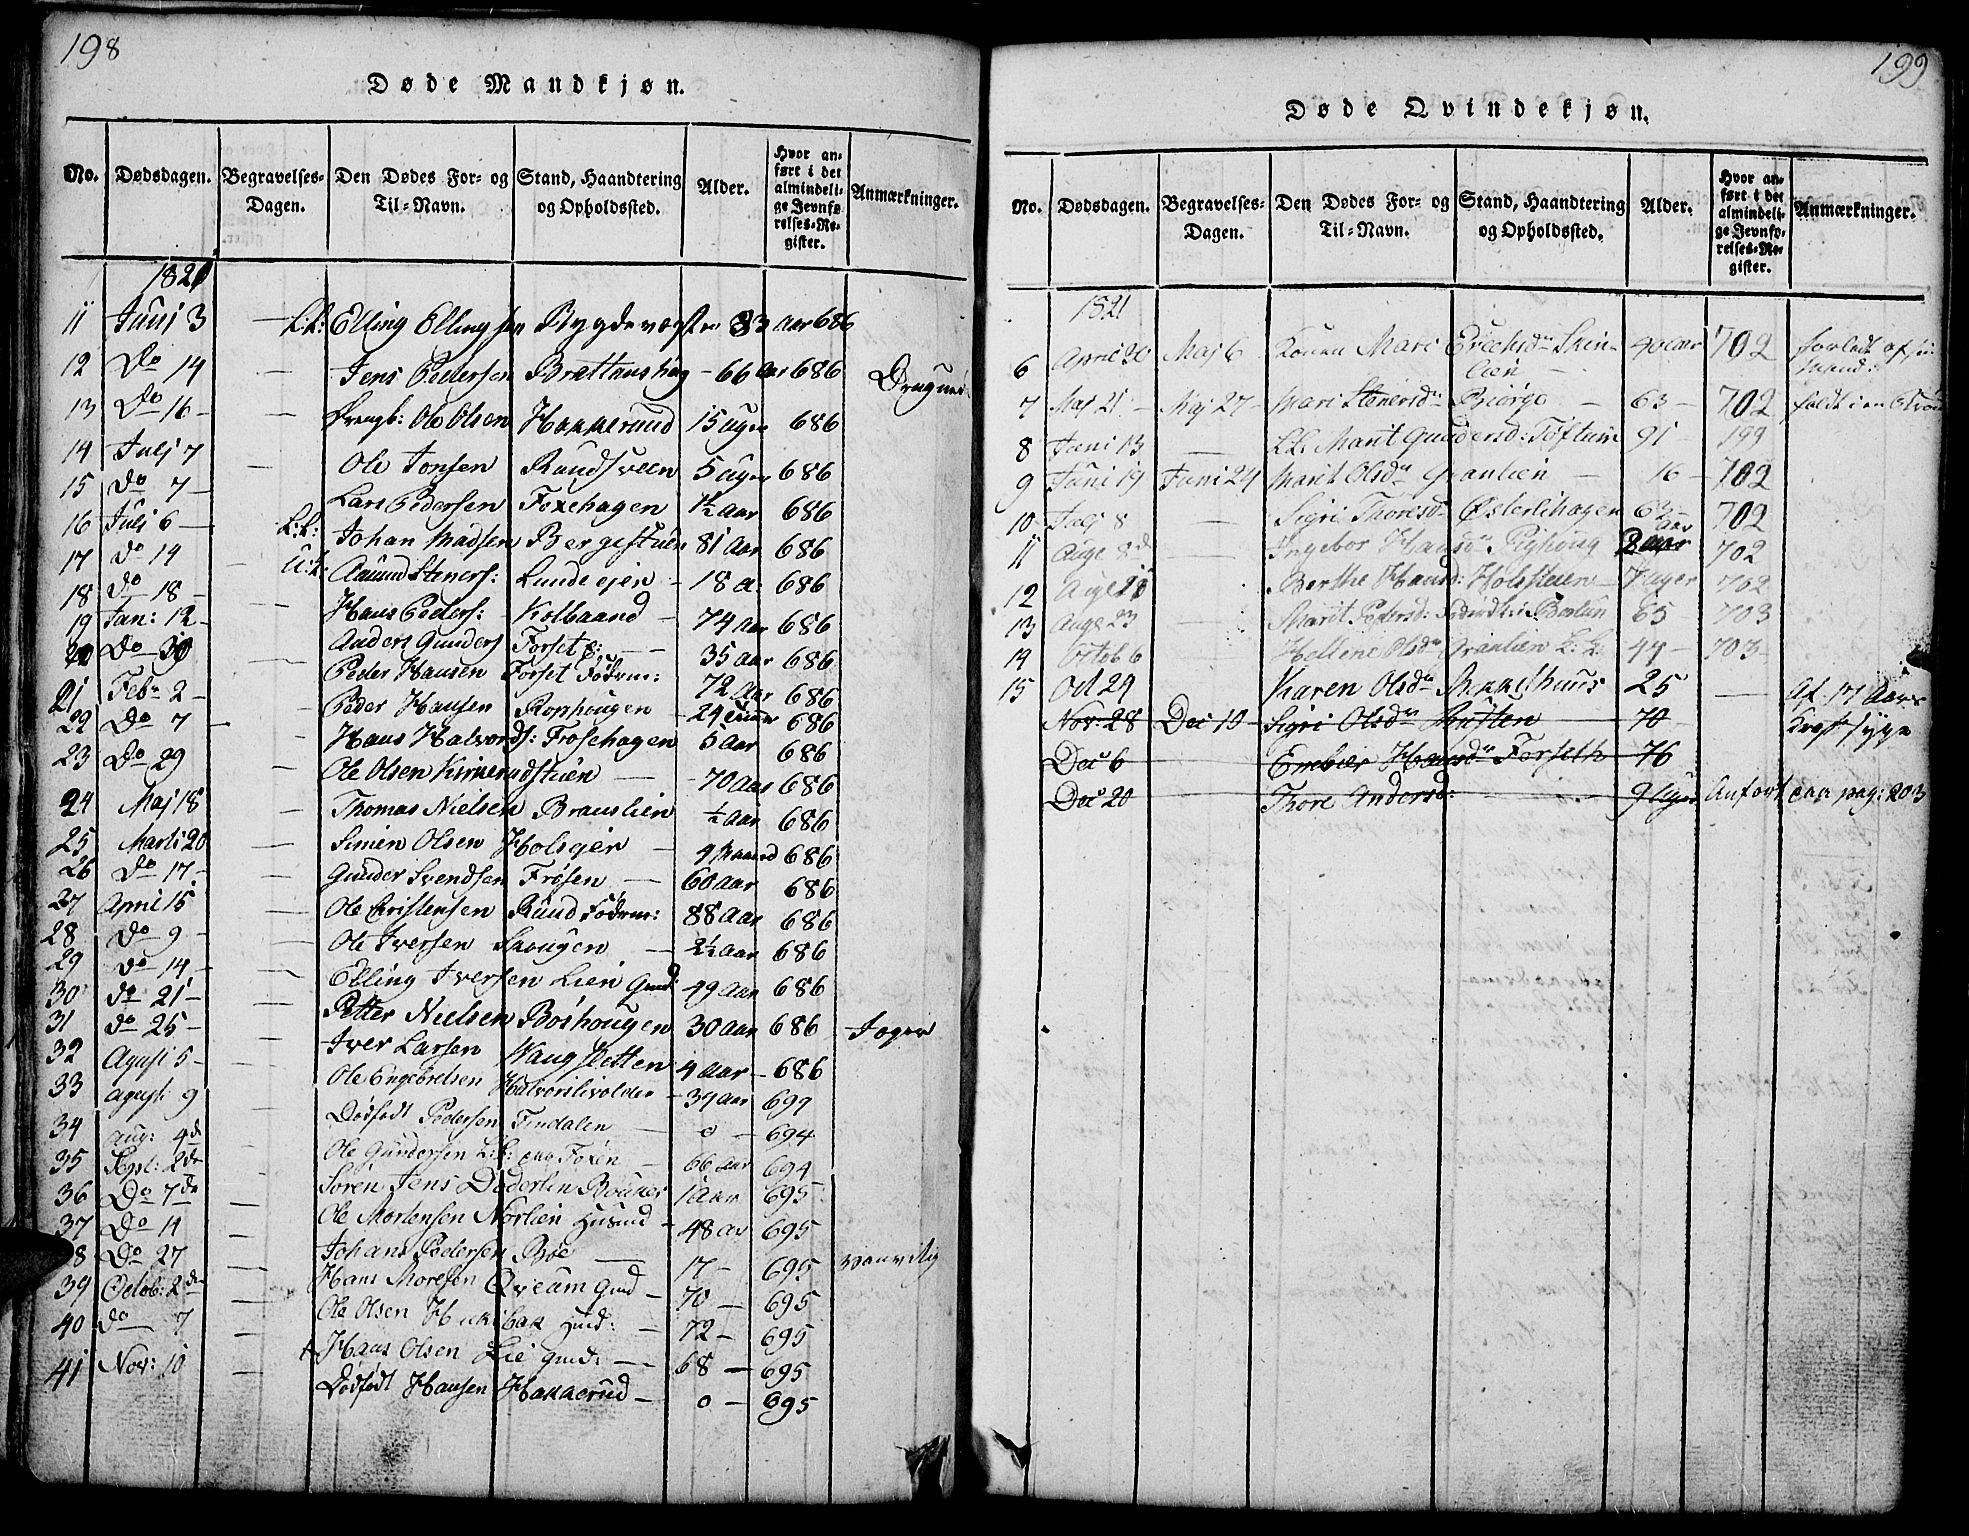 198
Døde Mandkjøn.
No. Dødsdagen. Begravelses-Dagen. Den Dødes For- og Til-Navn. Stand, Haandtering og Opholdssted. Alder. Hvor anført i det almindelige Jevnførelses-Register. Anmærkninger.
1821
11 Juni 3 — L.L: Elling Ellingsen Bygdevægter 83 aar 686
12 Do 14 — Jens Pedersen Brættaushag — 66 Aar 686 Dragun
13 Do 16 — Drengb: Ole Olsen Hakkerud 15 uger 686
14 Julj 7 — Ole Jonsen Rundsveen 5 uger 686
15 Do 7 — Lars Pedersen Foxehagen 1½ Aar 686
16 Juli 6 — L:L: Johan Madsen Bergestuen 81 Aar 686
17 Do 14 — Amund Steners: Lundeejen — 18 a. 686
18 Do 18 — Hans Peders: Kolbaand — 74 aar 686
19 Jan: 12 — Anders Gunders Forset 35 aar 686
20 Do 30 — Peder Hansen Forset Fødrm: 72 aar 686
21 Febr 2 — Peder Hansen Kophougen — 24 Timer 686
22 Do 7 — Hans Halvords: Frosehagen 5 Aar 686
23 Do 29 — Ole Olsen Kirkerudstuen — 70 aar 686
24 Maj 18 — Thomas Nielsen Brauslien ½ aar 686
25 Marti 20 — Simen Olsen Holsgjer — 4 Maaned 686
26 Do 17 — Gunder Svendsen Frøsen — 60 aar 686
27 April 15 — Ole Cristensen Rund Fødrm: 88 aar 686
28 Do 9 — Ole Iversen Skougen — 2½ aar 686
29 Do 14 — Elling Iversen Lien Gmd: 49 aar 686
30 Do 21 — Petter Nielsen Boshougen 30 aar 686 Joger
31 Do 25 — Iver Larsen Haugsletten 4 aar — 686
32 Agusti 5 — Ole Engebretsen Halvorslivolden 39 aar 694
33 Agusti 9 — Dødfødt Pedersen Findalen — 0 — 694
34 Aug: 4de Ole Gundersen L:L: paa Foxen — 66 aar 694
35 Sept: 2de Søren Jens Døderlin Bounes 1 Aar 695
36 Do 7de — Ole Mortensen Norlien Husmd — 48 ar 695
37 Do 11 — Johans Pedersen Bøe — 17 — 695 vanvitig
38 Do 27 — Hans Moresen Qveum Gmd — 70 — 695
39 Octob: 2de — Ole Olsen Hmd: — 72 — 695
40 do 7 — Hans Olsen Lie Gmd: — 68 — 695
41 Nov: 10 Dødfødt Hansen Hakkerud — 0 — 695
199
Døde Qvindekjøn.
No. Dødsdagen. Begravelses-Dagen. Den Dødes For- og Til-Navn. Stand, Haandtering og Opholdssted. Alder. Hvor anført i det almindelige Jevnførelses-Register. Anmærkninger.
1821
6 April 30 Maj 6 Konen Mari Erichsdr Skinlien — 40 aar 702 forladt af sin Mand:
7 Maj 21 — Maj 27 — Mari Stenersdr Biørge — 63 — 702 faldt i en Brønd
8 Juni 13 — L.L. Marit Gundersd: Toftum 91 — 199
9 Juni 19 Juni 24 Marit Olsdr Granlien — 16 — 702
10 Julj 8 — Sigri Thoresd Østerlihagen 62 — 702
11 Augs 8de — Ingebor Hansdr Righoug aar 702
12 Augs — Berthe Hansd: Holstuen — 7 uger 702
13 Augs 23 — Marit Pedersd: 65 703
14 Octob 6 — Hellene Olsdr Granlien L:L: 44 — 703 —
15 Oct 29 Karen Olsdr Mekkelhuus 25 — Af 17 Aars Kræftsyge
Nov: 28 Dec 10 — Sigri Olsdr 70
Dec 6 Embier Hansdr Forseth — 76
Dec 20 Thore Andersd: 9 Uger Anført paa pag: 203